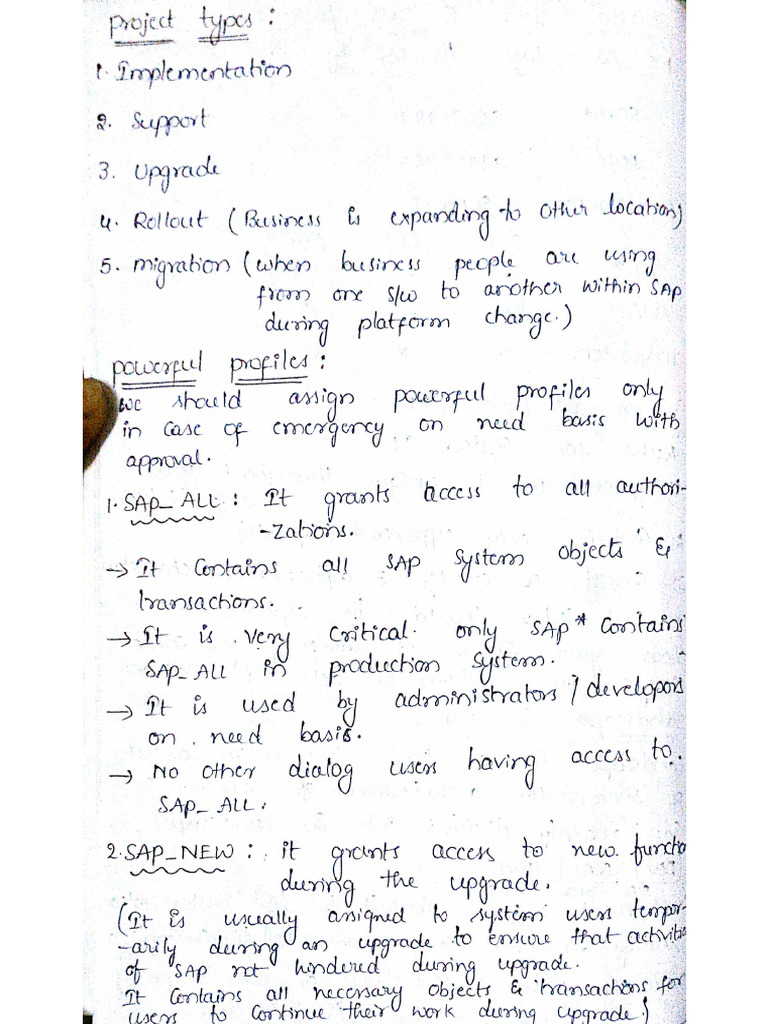 Project types :
1. Implementation
2. Support
3. Upgrade
4. Rollout (Business is expanding to other locations)
5. migration (when business people are using
from one s/w to another within SAP
during platform change.)
powerful profiles :
we should assign powerful profiles only
in case of emergency on need basis with
approval.
1. SAP_ALL : It grants access to all authori-
-zations.
→ It contains all SAP system objects &
transactions.
→ It is very critical. only SAP* contains
SAP_ALL in production system.
→ It is used by administrators / developors
on need basis.
→ No other dialog users having access to.
SAP_ALL.
2. SAP_NEW : it grants access to new functio
during the upgrade.
(It is usually assigned to system users tempor-
-arily during an upgrade to ensure that activitie
of SAP not hindered during upgrade.
It contains all necessary objects & transactions for
users to continue their work during upgrade)